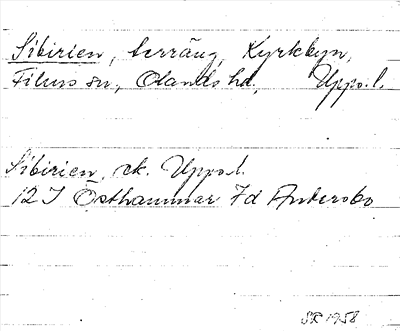 Sibirien, terräng, Kyrkbyn,
Films sn, Olands hd, Uppo.l.
Sibirien, ek. Uppo.l.
12 I Östhammar 7d Andersbo
SR 1958